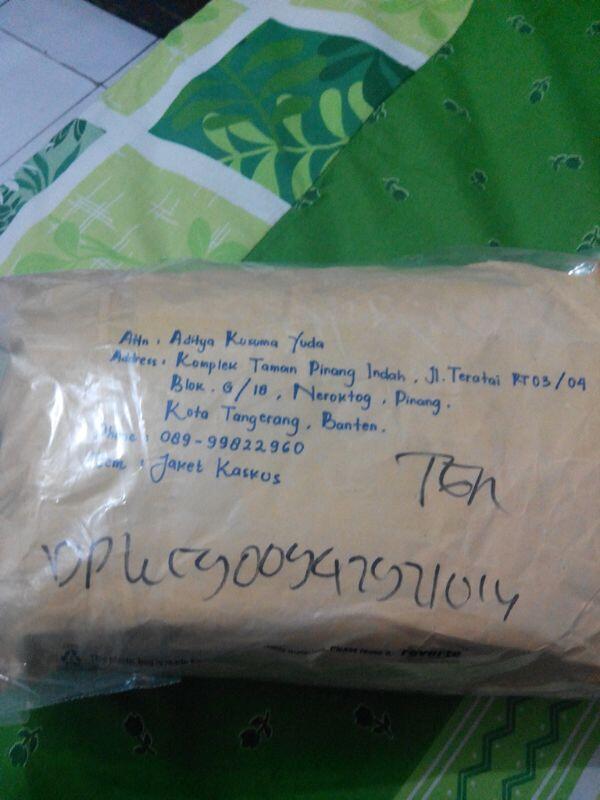 Attn : Aditya Kusuma Yuda
Address : Komplek Taman Pinang Indah , Jl. Teratai RT 03/04
Blok . G/18 , Neroktog , Pinang .
Kota Tangerang , Banten .
Phone : 089-99822960
Item : Jaket Kaskus
TGR
The plastic bag is made
reverse